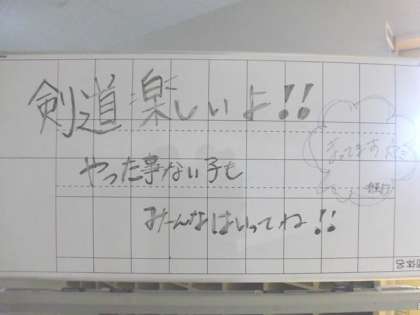 剣道楽しいよ!!
やった事ない子も
みーんなはいってね!!
まってます